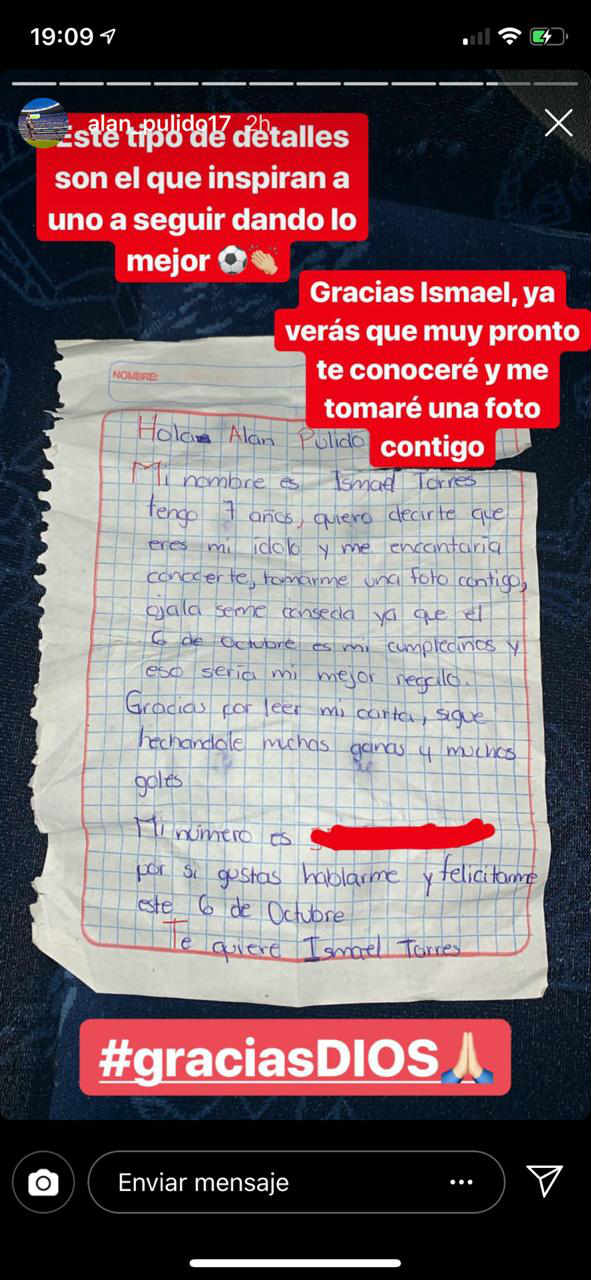 19:09
alan_pulido17 2h
Este tipo de detalles
son el que inspiran a
uno a seguir dando lo
mejor ⚽👏🏻
Gracias Ismael, ya
verás que muy pronto
te conoceré y me
tomaré una foto
contigo
NOMBRE:
Hola Alan Pulido
Mi nombre es Ismael Torres
tengo 7 años, quiero decirte que
eres mi idolo y me encantaria
conocerte, tomarme una foto contigo,
ojala seme conseda ya que el
6 de Octubre es mi cumpleaños y
eso seria mi mejor regalo.
Gracias por leer mi carta, sigue
hechandole muchas ganas y muchos
goles
Mi número es
por si gustas hablarme y felicitarme
este 6 de Octubre
Te quiere Ismael Torres
#graciasDIOS🙏🏻
Enviar mensaje